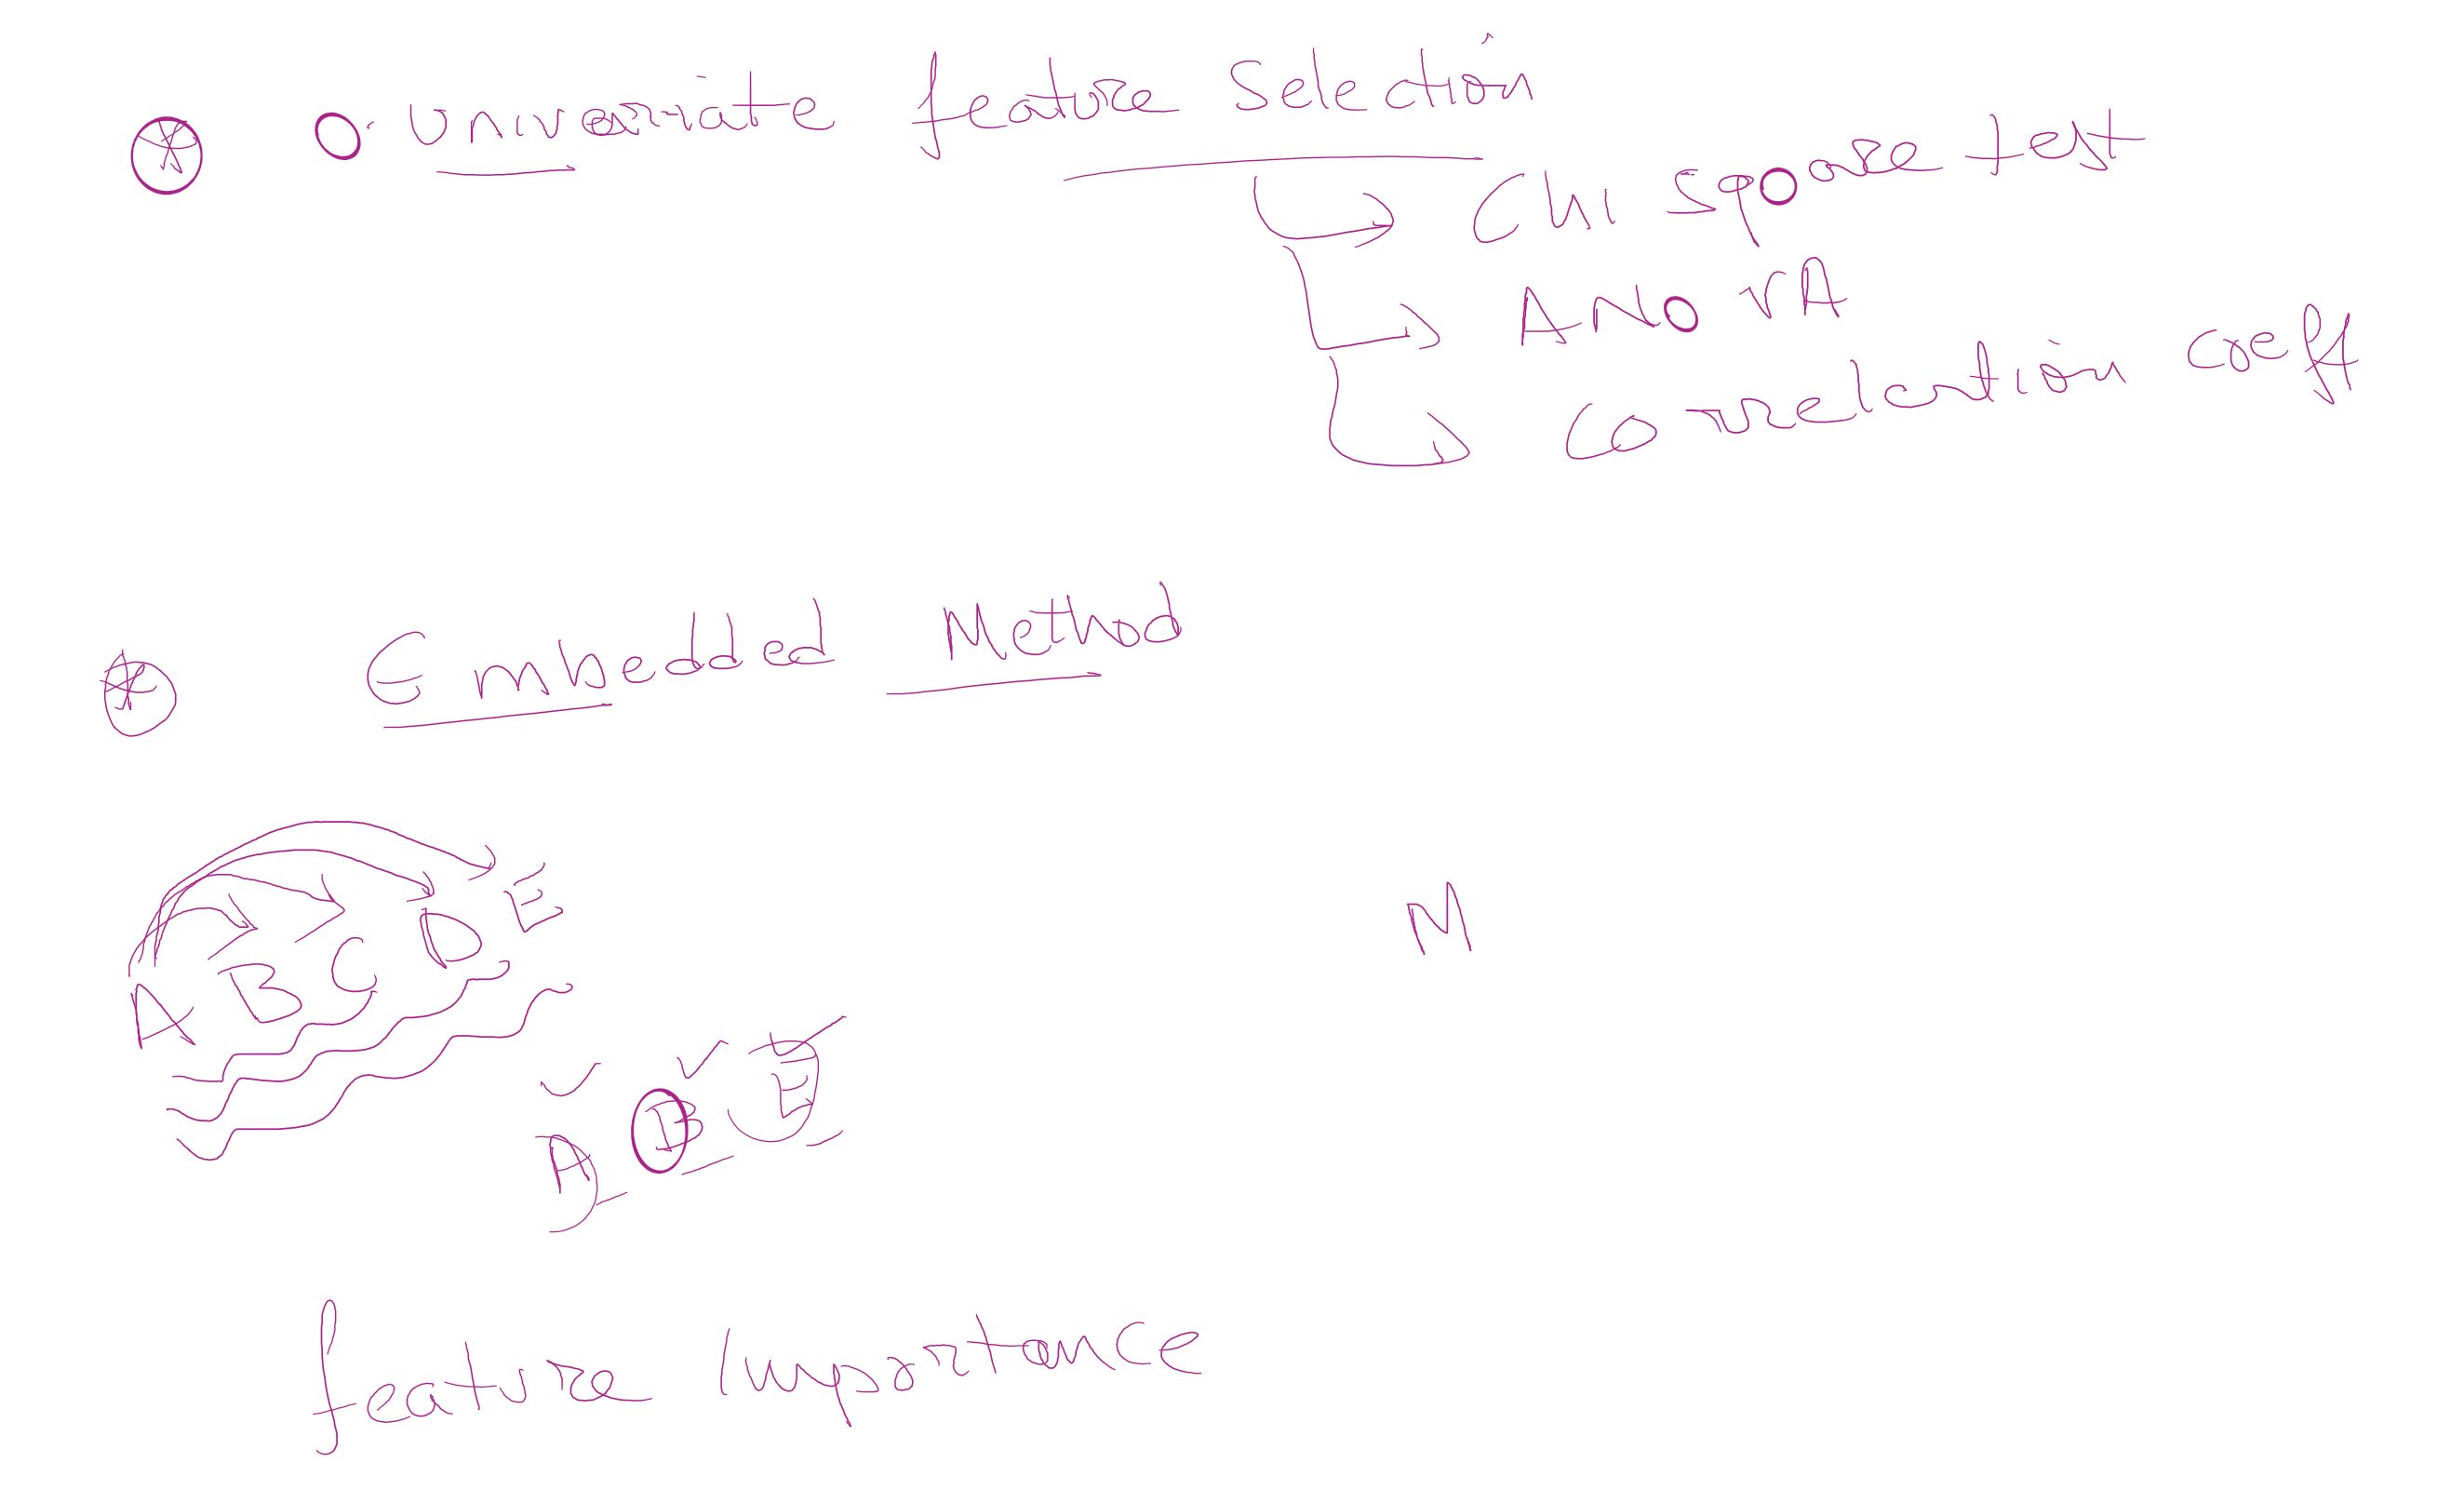 Univariate feature Selection
Chi Square test
ANOVA
Correlation Coeff
Embedded Method
A B C D E
M
A B E
feature Importance